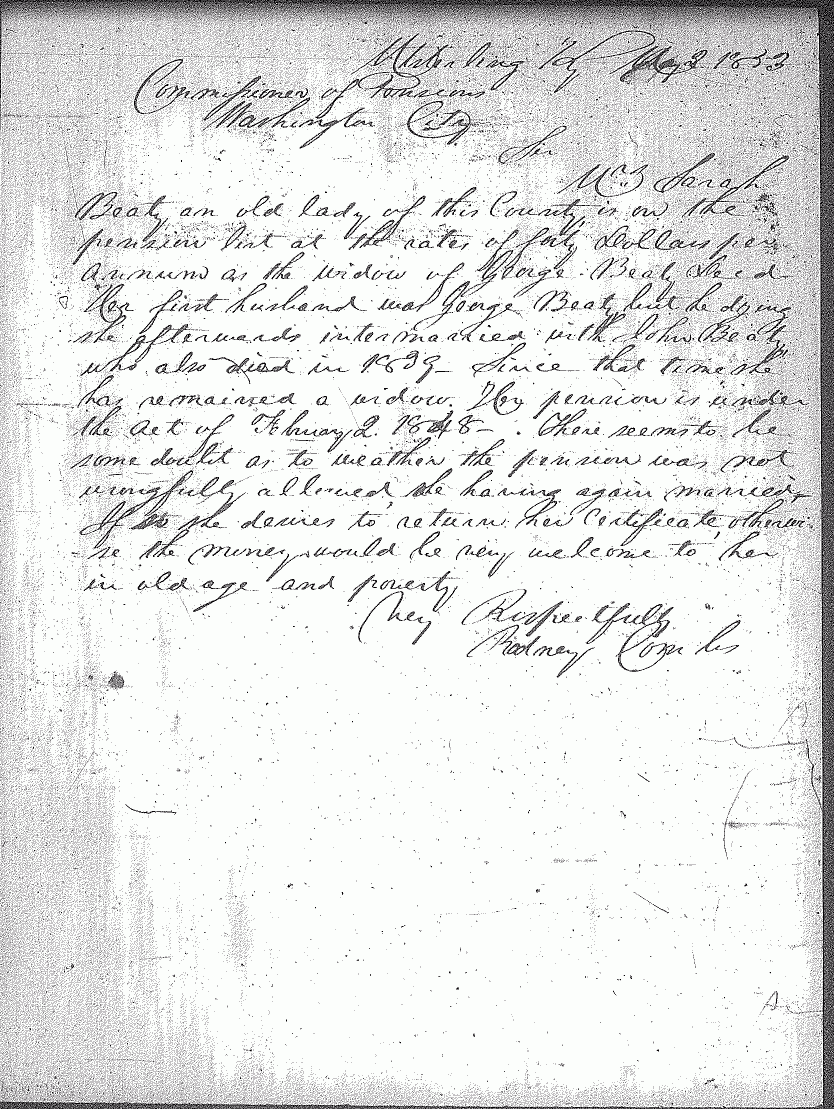 Mt Sterling Ky May 3 1853
Commissioner of Pensions
Washington City
Sir
Mrs Sarah
Beaty an old lady of this County is on the
pension list at the rates of forty Dollars per
annum as the widow of George Beaty Decd
Her first husband was George Beaty but he dying
she afterwards intermarried with John Beaty
who also died in 1839- Since that time she
has remained a widow. Her pension is under
the act of February 2 1848- . There seems to be
some doubt as to weather the pension was not
wrongfully allowed she having again married,-
If so she desires to return her certificate, otherwi-
-se the money would be very welcome to her
in old age and poverty
Very Respectfully
Rodney